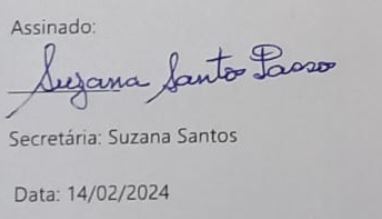 Assinado:
Suzana Santos Passos
Secretária: Suzana Santos
Data: 14/02/2024